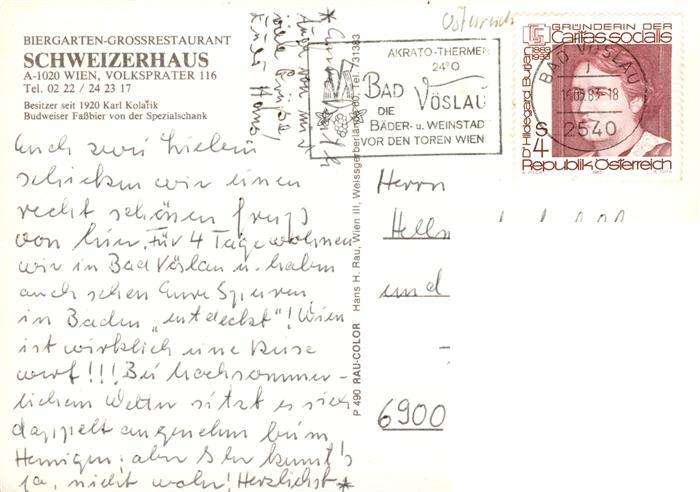 BIERGARTEN-GROSSRESTAURANT
SCHWEIZERHAUS
A-1020 WIEN, VOLKSPRATER 116
Tel. 02 22 / 24 23 17
Besitzer seit 1920 Karl Kolařik
Budweiser Faßbier von der Spezialschank
Euch zwei Lieben
schicken wir einen
recht schönen Gruss
von hier. Für 4 Tage wohnen
wir in Bad Vöslau u. haben
auch schon Eure Spuren
in Baden „entdeckt"! Wien
ist wirklich eine Reise
wert!!! Bei hochsommer-
lichem Wetter sitzt es sich
doppelt angenehm beim
Heurigen; aber Ihr kennt's
ja, nicht wahr! Herzlichst *
*
Auch von mir
viele Grüsse,
P 490 RAU-COLOR Hans H. Rau, Wien III, Weissgerberlände 60, Tel. 731383
Österreich
AKRATO-THERMEN
24°O
BAD VÖSLAU
DIE
BÄDER- u. WEINSTADT
VOR DEN TOREN WIEN
BAD VÖSLAU
2540
GRÜNDERIN DER
Caritas socialis
1883
Dr. Hildegard Burjan
S 4
Republik Österreich
Herrn
und
6900